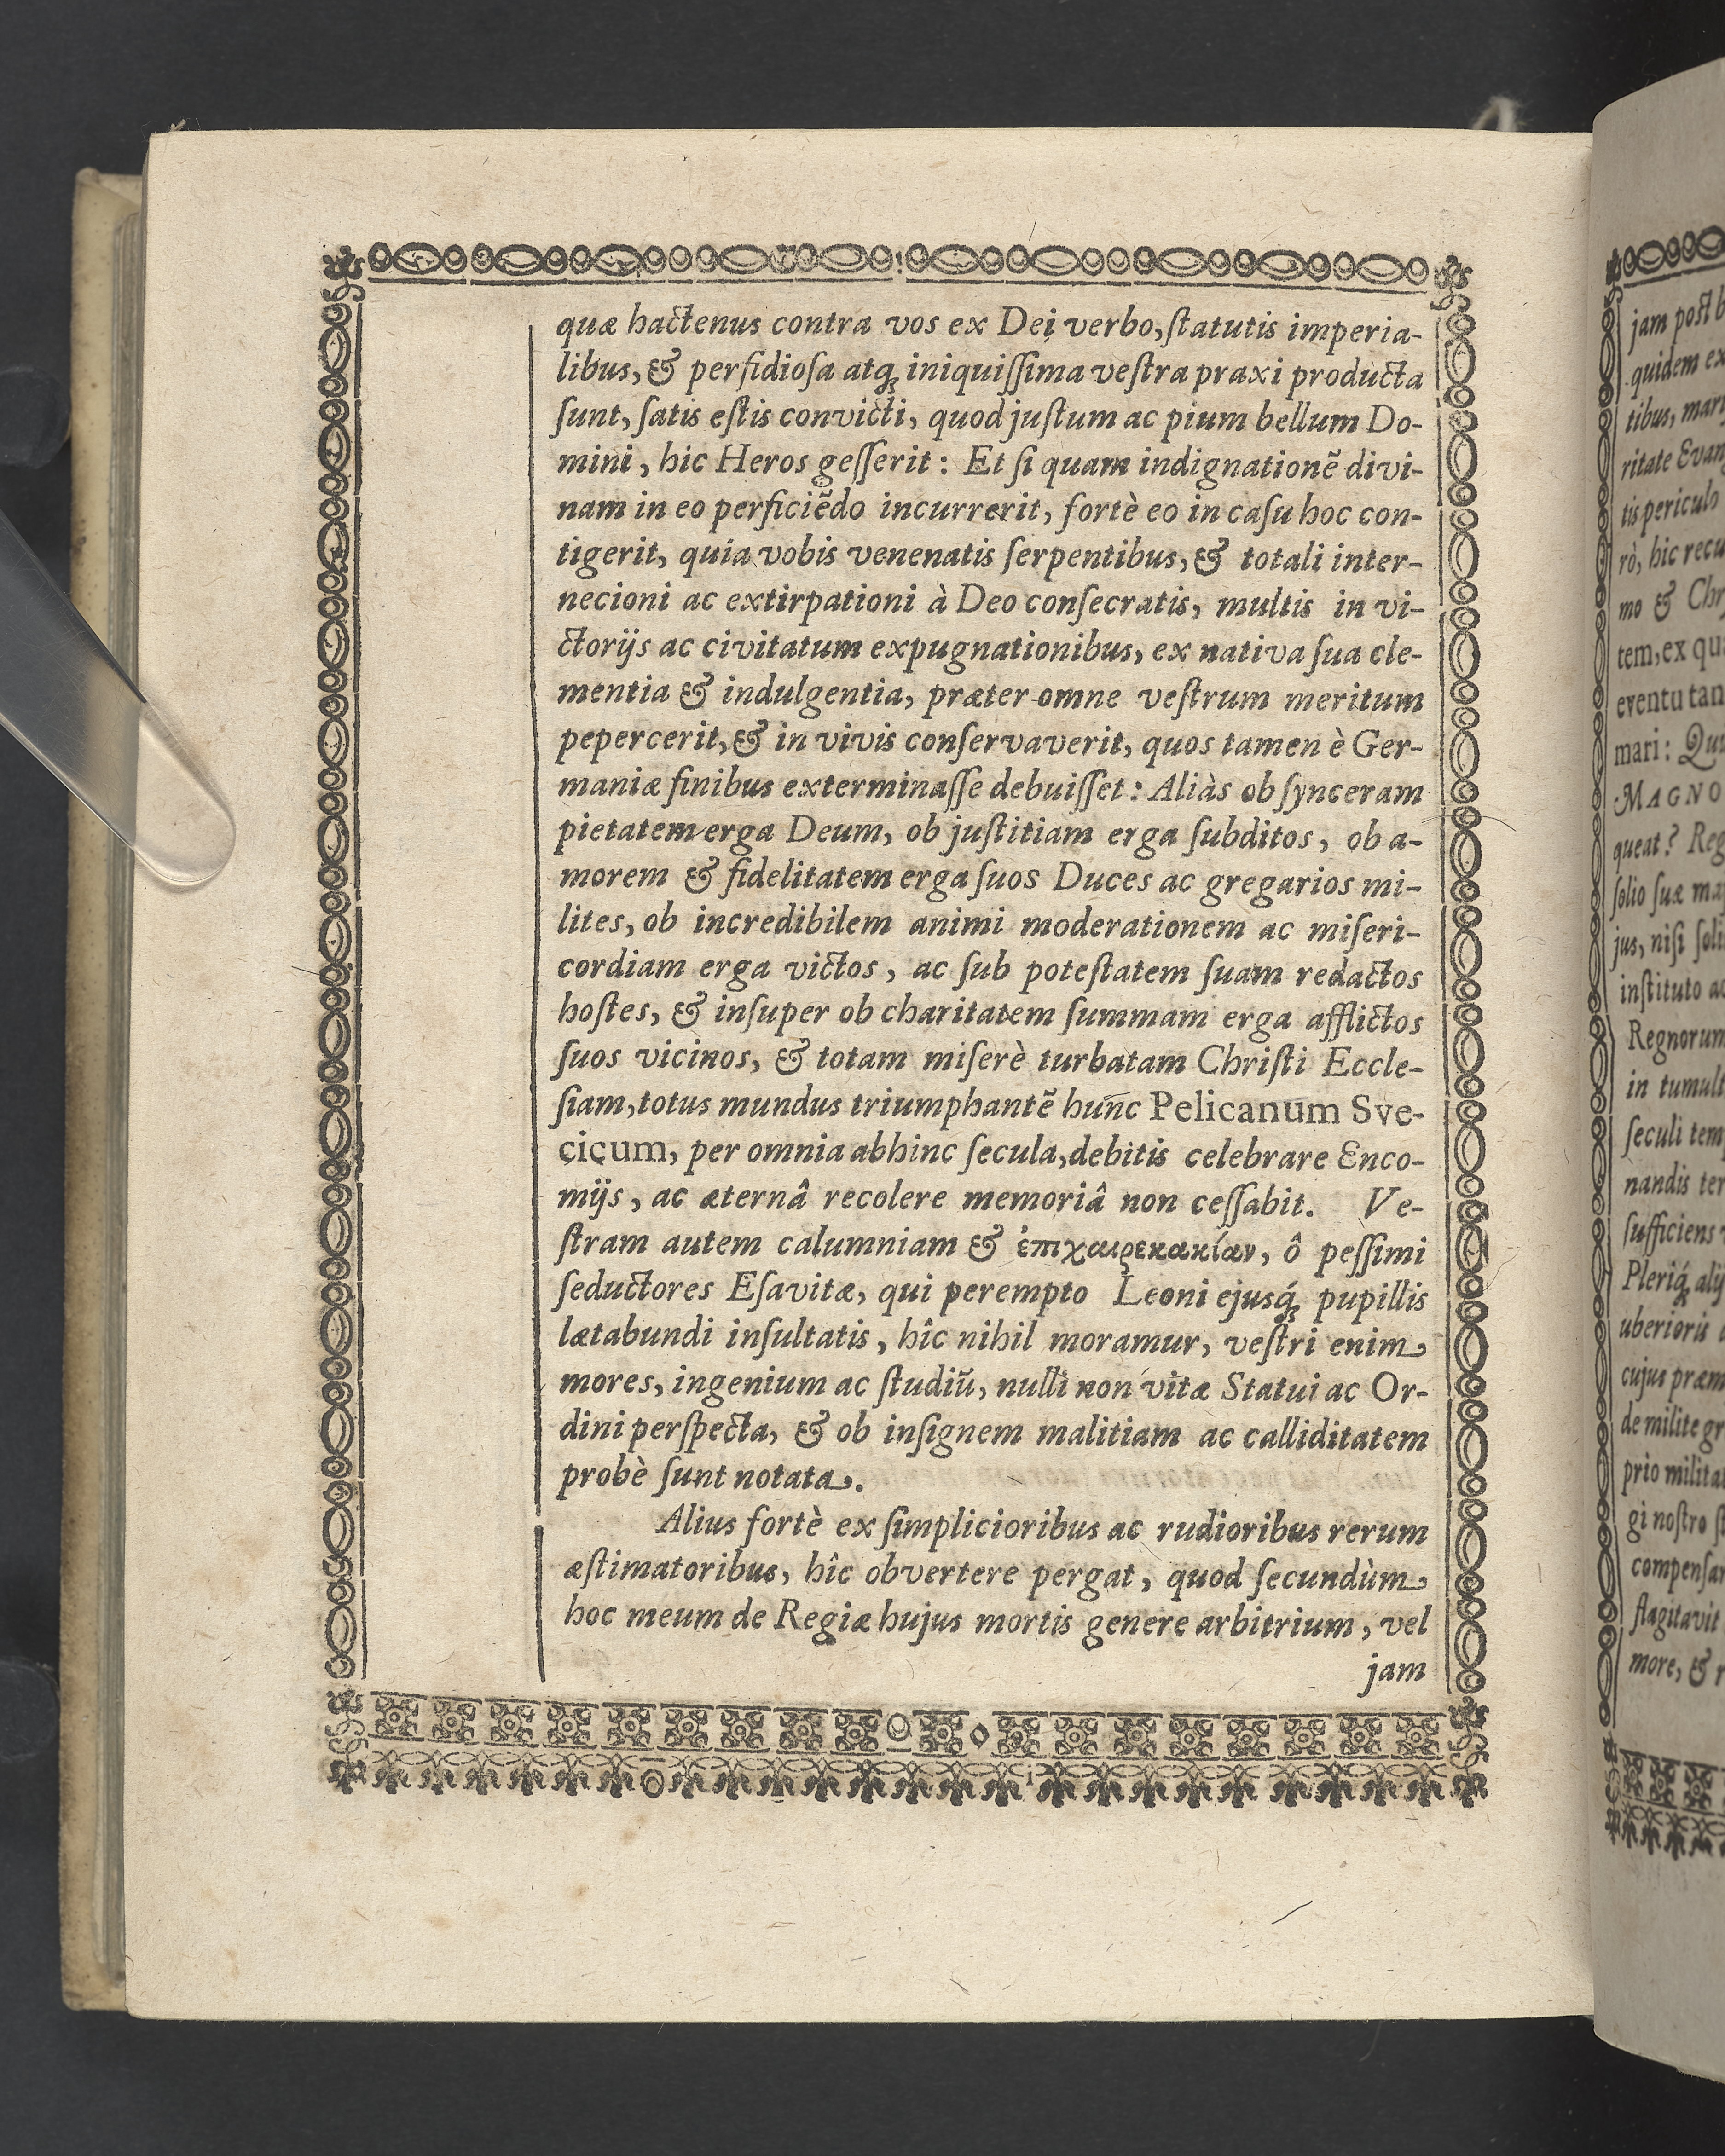 quæ hactenus contra vos ex Dei verbo, ſtatutis imperia-
libus, & perfidioſa atq́ꝫ iniquiſſima veſtra praxi producta
ſunt, ſatis eſtis convicti, quod juſtum ac pium bellum Do-
mini, hic Heros geſſerit: Et ſi quam indignationẽ divi-
nam in eo perficiẽdo incurrerit, fortè eo in caſu hoc con-
tigerit, quia vobis venenatis ſerpentibus, & totali inter-
necioni ac extirpationi à Deo conſecratis, multis in vi-
ctorijs ac civitatum expugnationibus, ex nativa ſua cle-
mentia & indulgentia, præter omne veſtrum meritum
pepercerit, & in vivis conſervaverit, quos tamen è Ger-
maniæ finibus exterminaſſe debuiſſet: Aliàs ob ſynceram
pietatem erga Deum, ob juſtitiam erga ſubditos, ob a-
morem & fidelitatem erga ſuos Duces ac gregarios mi-
lites, ob incredibilem animi moderationem ac miſeri-
cordiam erga victos, ac ſub poteſtatem ſuam redactos
hoſtes, & inſuper ob charitatem ſummam erga afflictos
ſuos vicinos, & totam miſerè turbatam Chriſti Eccle-
ſiam, totus mundus triumphantẽ hunc Pelicanum Sve-
cicum, per omnia abhinc ſecula, debitis celebrare Enco-
mijs, ac æternâ recolere memoriâ non ceſſabit. Ve-
ſtram autem calumniam & ἐπιχαιρεκακίαν, ô peſſimi
ſeductores Eſavitæ, qui perempto Leoni ejusq́ꝫ pupillis
lætabundi inſultatis, hîc nihil moramur, veſtri enim
mores, ingenium ac ſtudiũ, nulli non vitæ Statui ac Or-
dini perſpecta, & ob inſignem malitiam ac calliditatem
probè ſunt notata.
Alius fortè ex ſimplicioribus ac rudioribus rerum
æſtimatoribus, hîc obvertere pergat, quod ſecundùm
hoc meum de Regiæ hujus mortis genere arbitrium, vel
jam
jam poſt
quidem
tibus,
ritate
tis periculo
rò, hic
mo &
tem, ex
eventu
mari:
MAGNO
queat?
ſolio ſuæ
jus, niſi
inſtituto
Regnorum
in
ſeculi
nandis
ſufficiens
Pleriq́ꝫ
uberioris
cujus
de milite
prio
gi noſtro
more, &